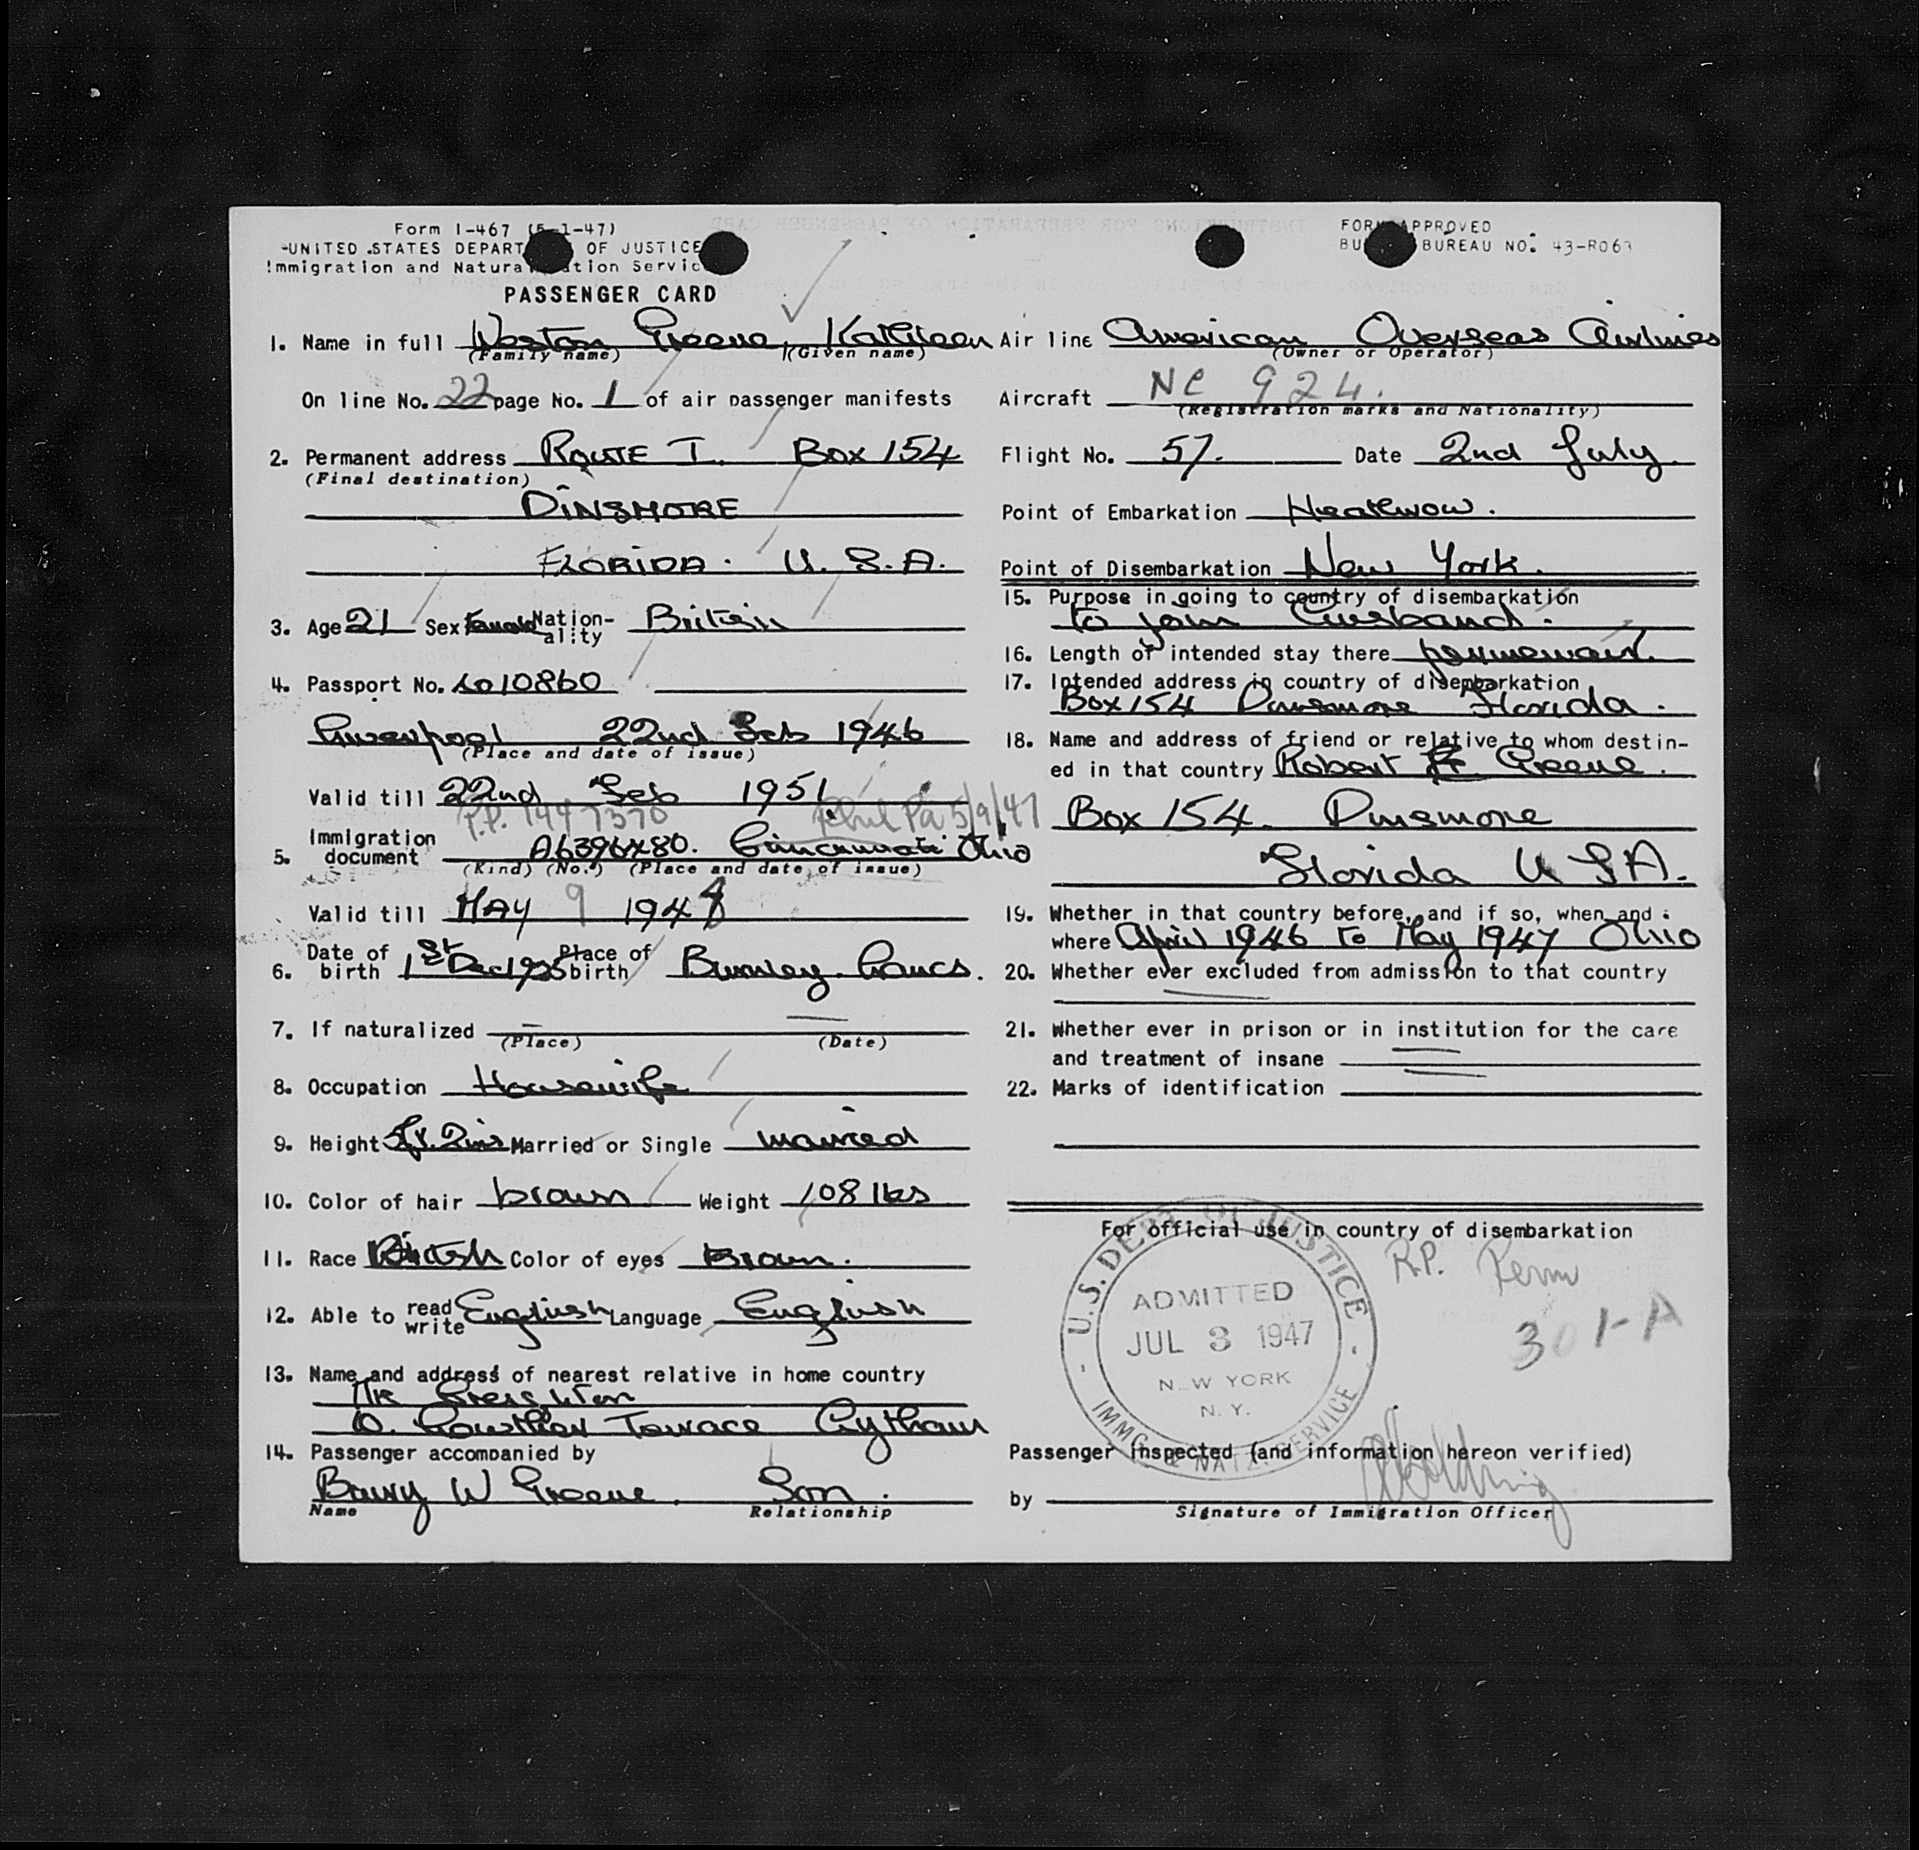 Form I-467 (5-1-47)
UNITED STATES DEPART OF JUSTICE
Immigration and Natura ation Servic
PASSENGER CARD
FORM APPROVED
BU BUREAU NO. 43-R063
1. Name in full Weston Greene, Kathleen
(Family name) (Given name)
On line No. 22 page No. 1 of air passenger manifests
2. Permanent address ROUTE I. BOX 154
(Final destination)
DINSMORE
FLORIDA. U. S. A.
3. Age 21 Sex Female Nationality British
4. Passport No. L010860
Liverpool 22nd Feb 1946
(Place and date of issue)
Valid till 22nd Feb 1951
P.P. 1447370 Phil Pa 5/9/47
5. Immigration document A6396480. Cincinnati Ohio
(Kind) (No.) (Place and date of issue)
Valid till MAY 9 1948
6. Date of birth 1st Dec 1925 Place of birth Burnley. Lancs.
7. If naturalized —
(Place) (Date)
8. Occupation Housewife
9. Height 5ft. 2ins Married or Single married
10. Color of hair brown Weight 108 lbs
11. Race British Color of eyes Brown.
12. Able to read write English Language English
13. Name and address of nearest relative in home country
Mr Creighton
Lowther Terrace Lytham
14. Passenger accompanied by
Barry W Greene. Son.
Name Relationship
Air line American Overseas Airlines
(Owner or Operator)
Aircraft NC 924.
(Registration marks and Nationality)
Flight No. 57. Date 2nd July.
Point of Embarkation Heathrow.
Point of Disembarkation New York.
15. Purpose in going to country of disembarkation
to join Husband.
16. Length of intended stay there permanent.
17. Intended address in country of disembarkation
Box 154 Dinsmore Florida.
18. Name and address of friend or relative to whom destin-
ed in that country Robert Greene.
Box 154. Dinsmore
Florida U S A.
19. Whether in that country before, and if so, when and
where April 1946 to May 1947 Ohio
20. Whether ever excluded from admission to that country
21. Whether ever in prison or in institution for the care
and treatment of insane
22. Marks of identification
For official use in country of disembarkation
R.P. Perm
301-A
U.S. DEPT. OF JUSTICE
ADMITTED
JUL 3 1947
N_W YORK
N. Y.
IMMG. & NATZ. SERVICE
Passenger inspected (and information hereon verified)
by
Signature of Immigration Officer